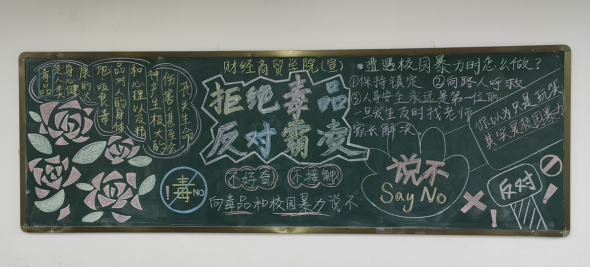 财经商贸学院(宣)
拒绝毒品
反对霸凌
不好奇 不接触
向毒品和校园暴力说不
毒 NO
毒品
是人类
身心健
康的
地吸食毒
品对人的身体
和心理以及精
神产生极大的
伤害甚至会
丧失生命
遭遇校园暴力时怎么做?
①保持镇定 ②向路人呼救
③人身安全永远是第一位的
一旦发生及时找老师
家长解决
说不
Say No
你以为只是玩笑
其实是校园暴力
反对